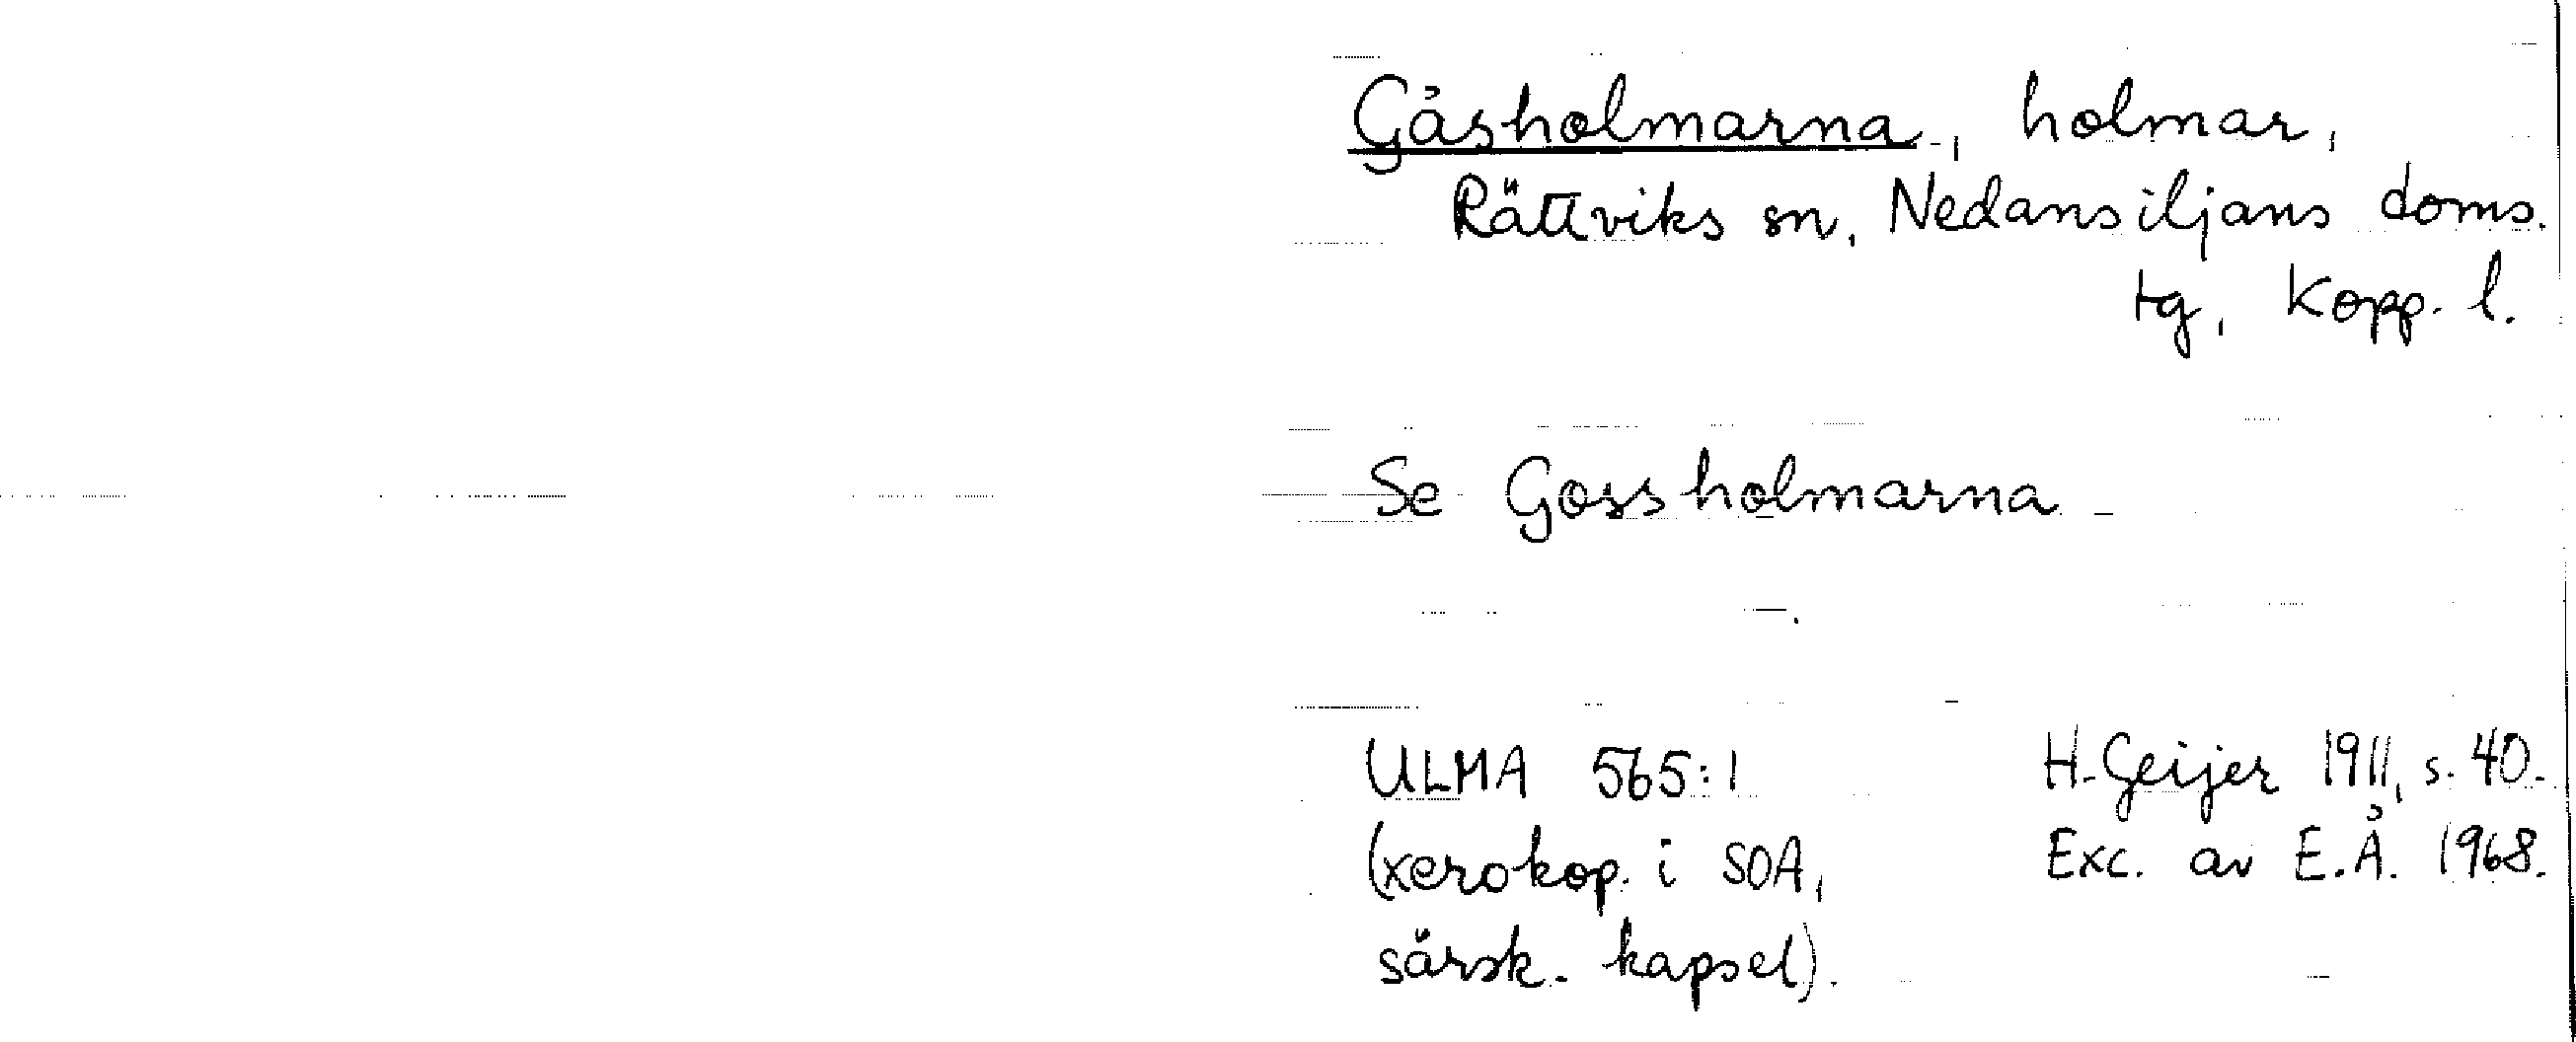 Gåsholmarna, holmar,
Rättviks sn, Nedansiljans doms.
tg, Kopp. l.
Se Gossholmarna
ULMA 565:1 H. Geijer 1911, s. 40.
(xerokop. i SOA, Exc. av E.Å. 1968.
särsk. kapsel).